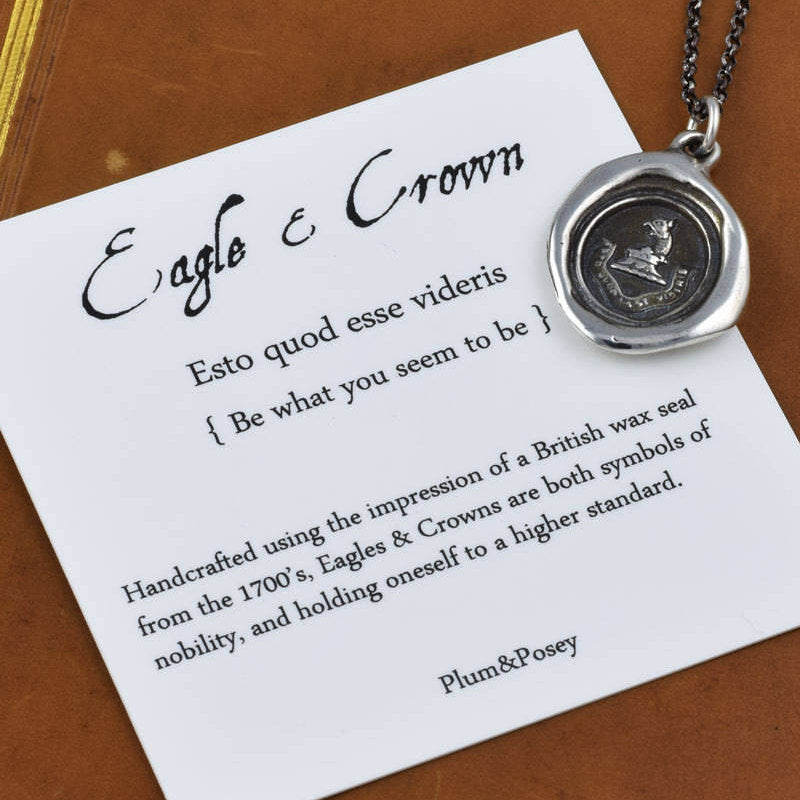 Eagle & Crown
Esto quod esse videris
{ Be what you seem to be }
Handcrafted using the impression of a British wax seal
from the 1700's, Eagles & Crowns are both symbols of
nobility, and holding oneself to a higher standard.
Plum&Posey